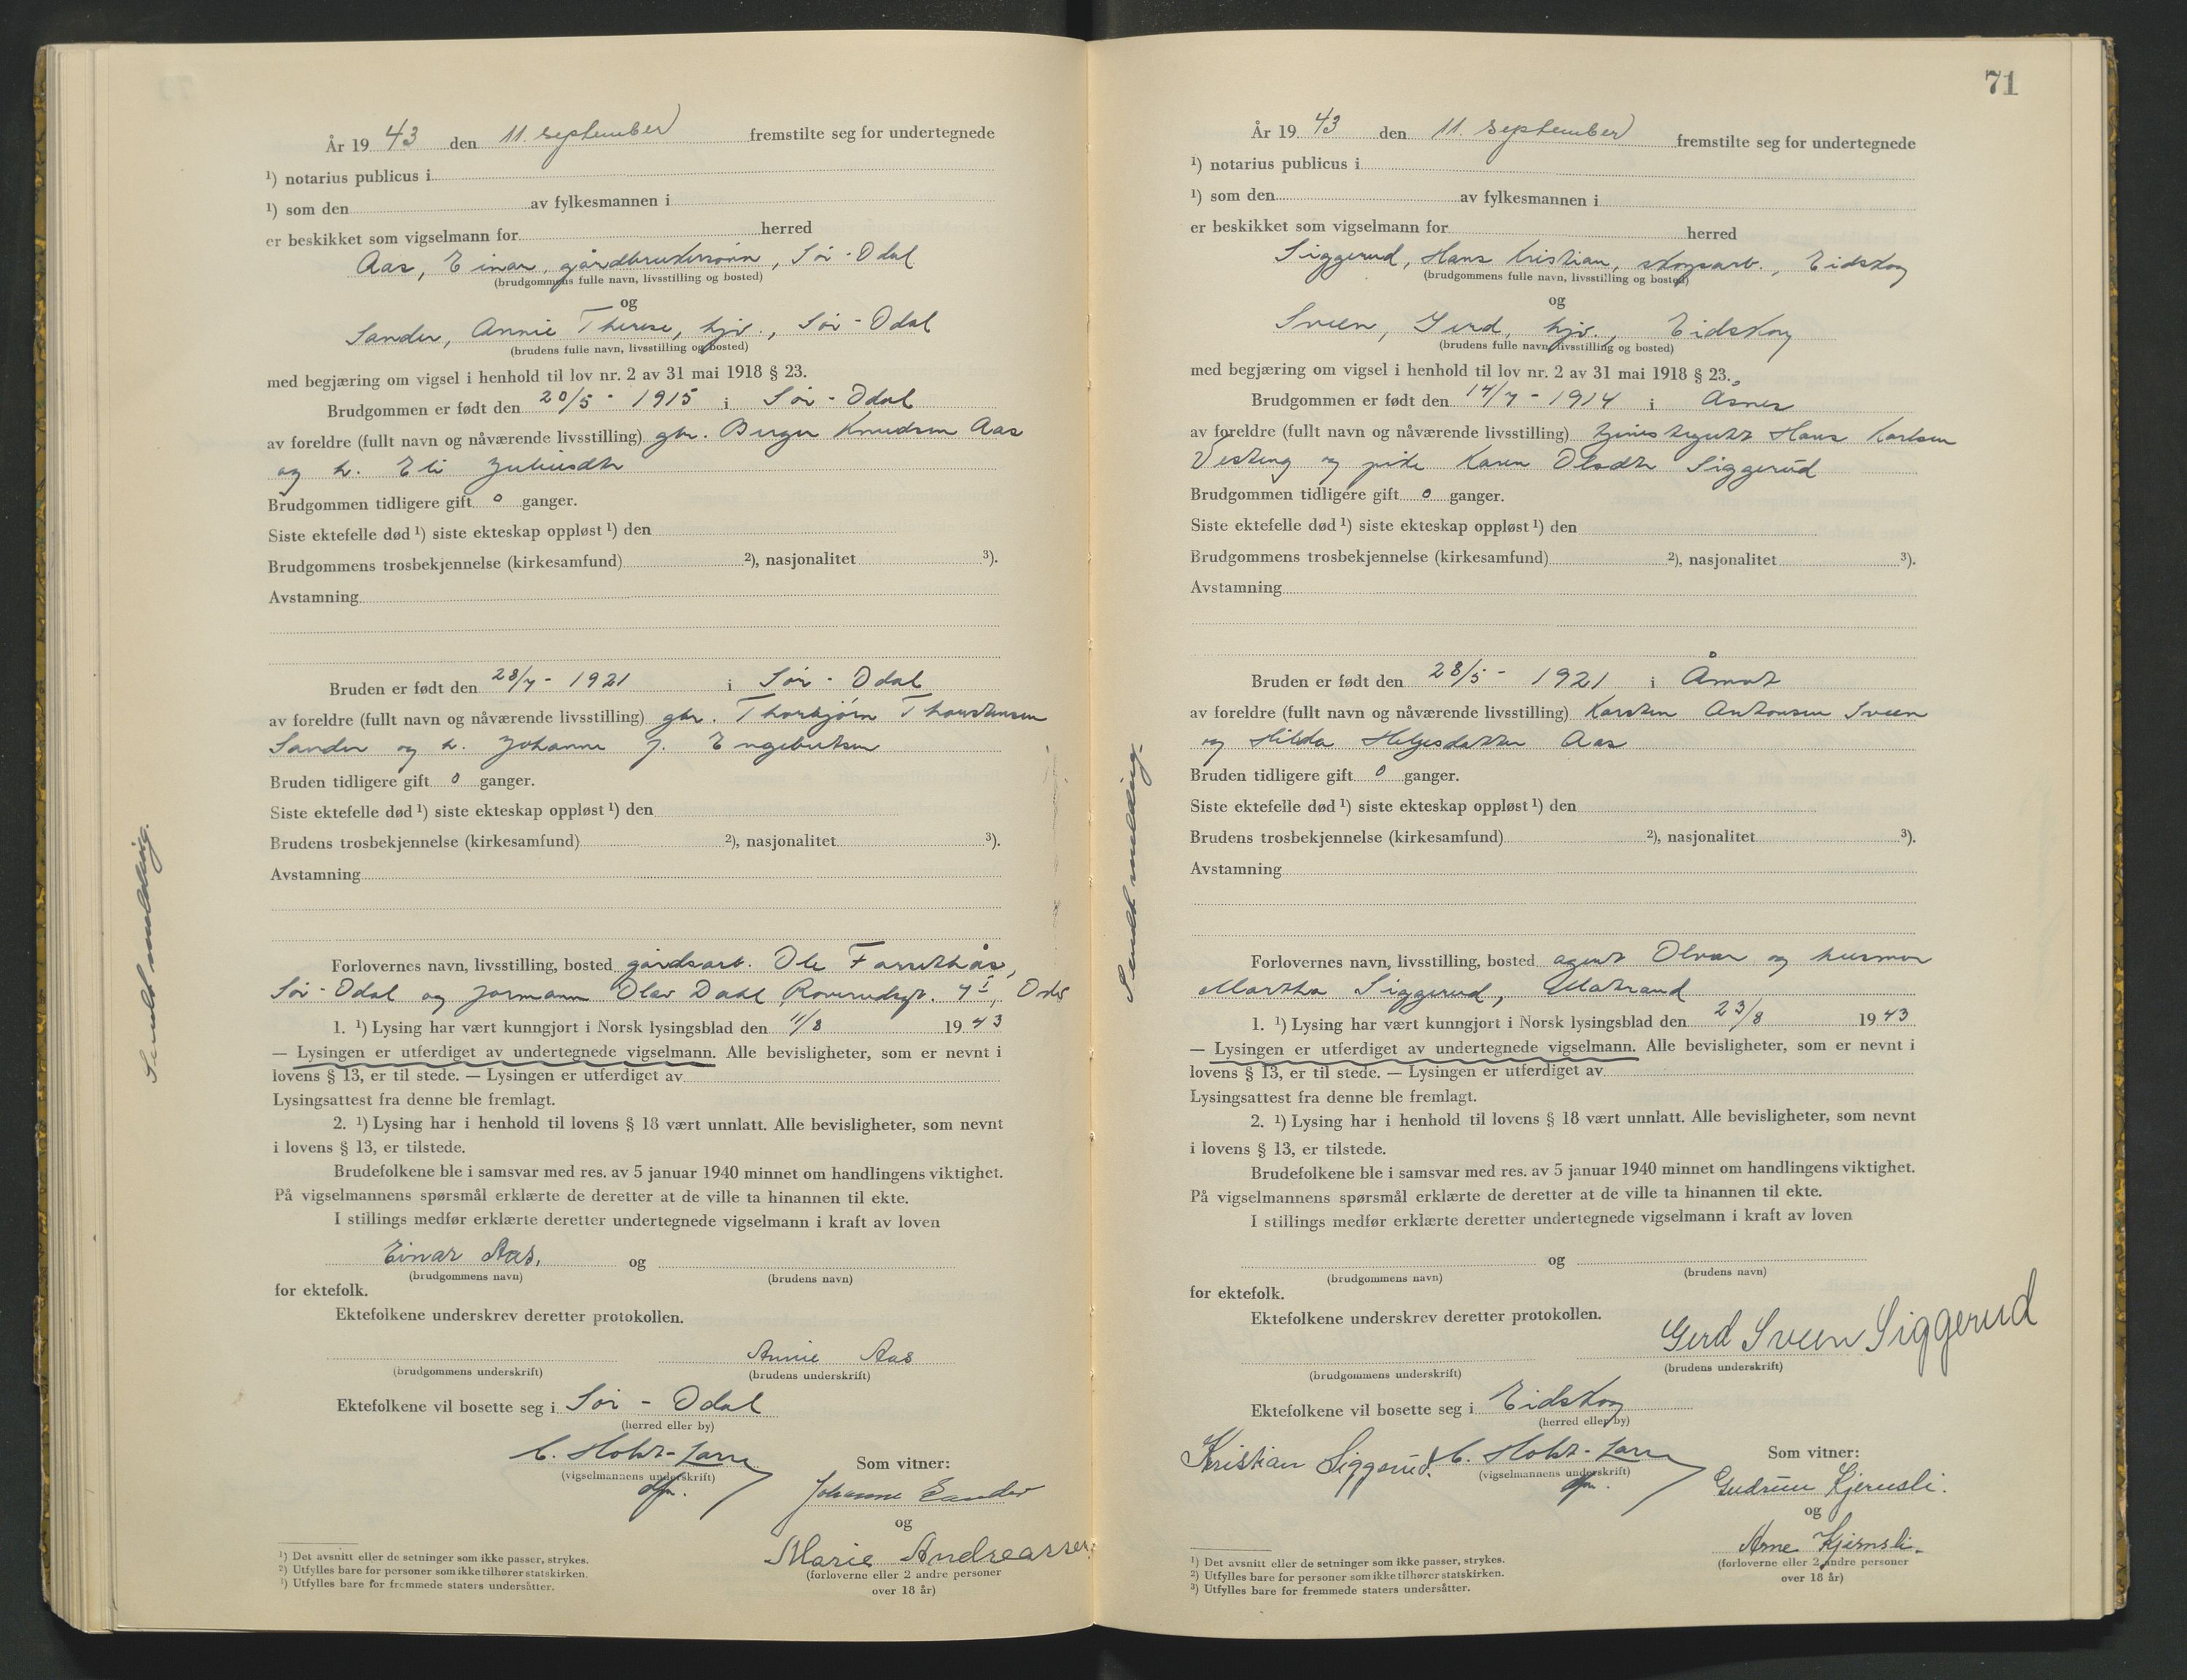 År 19 43 den 11. september fremstilte seg for undertegnede
¹) notarius publicus i
¹) som den av fylkesmannen i
er beskikket som vigselmann for herred
Aas, Einar, gårdbrukersønn, Sør-Odal
(brudgommens fulle navn, livsstilling og bosted)
og
Sander, Annie Therese, hjv., Sør-Odal
(brudens fulle navn, livsstilling og bosted)
med begjæring om vigsel i henhold til lov nr. 2 av 31 mai 1918 § 23.
Brudgommen er født den 20/5 - 1915 i Sør-Odal
av foreldre (fullt navn og nåværende livsstilling) gbr. Birger Knudsen Aas
og h. Eli Juliusdtr
Brudgommen tidligere gift 0 ganger.
Siste ektefelle død ¹) siste ekteskap oppløst ¹) den
Brudgommens trosbekjennelse (kirkesamfund) ²), nasjonalitet ³).
Avstamning
Bruden er født den 28/7 - 1921 i Sør-Odal
av foreldre (fullt navn og nåværende livsstilling) gbr. Thorbjørn Thorstensen
Sander og h. Johanne J. Engebretsen
Bruden tidligere gift 0 ganger.
Siste ektefelle død ¹) siste ekteskap oppløst ¹) den
Brudens trosbekjennelse (kirkesamfund) ²), nasjonalitet ³).
Avstamning
Sendt melding.
Forlovernes navn, livsstilling, bosted gårdsarb. Ole
Sør-Odal og formann Olav Dahl, Oslo
1. ¹) Lysing har vært kunngjort i Norsk lysingsblad den 11/8 19 43
— Lysingen er utferdiget av undertegnede vigselmann. Alle bevisligheter, som er nevnt i
lovens § 13, er til stede. — Lysingen er utferdiget av
Lysingsattest fra denne ble fremlagt.
2. ¹) Lysing har i henhold til lovens § 18 vært unnlatt. Alle bevisligheter, som nevnt
i lovens § 13, er tilstede.
Brudefolkene ble i samsvar med res. av 5 januar 1940 minnet om handlingens viktighet.
På vigselmannens spørsmål erklærte de deretter at de ville ta hinannen til ekte.
I stillings medfør erklærte deretter undertegnede vigselmann i kraft av loven
Einar Aas. og
(brudgommens navn) (brudens navn)
for ektefolk.
Ektefolkene underskrev deretter protokollen.
Annie Aas
(brudgommens underskrift) (brudens underskrift)
Ektefolkene vil bosette seg i Sør-Odal
(herred eller by)
C. Holst-Larsen
(vigselmannens underskrift)
dfm.
Som vitner:
Johanne Sander
og
Marie Andreassen
(forloverne eller 2 andre personer
over 18 år)
¹) Det avsnitt eller de setninger som ikke passer, strykes.
²) Utfylles bare for personer som ikke tilhører statskirken.
³) Utfylles bare for fremmede staters undersåtter.
71
År 19 43 den 11. september fremstilte seg for undertegnede
¹) notarius publicus i
¹) som den av fylkesmannen i
er beskikket som vigselmann for herred
Siggerud, Hans Kristian, skogsarb., Eidskog
(brudgommens fulle navn, livsstilling og bosted)
og
Sveen, Gerd, hjv., Eidskog
(brudens fulle navn, livsstilling og bosted)
med begjæring om vigsel i henhold til lov nr. 2 av 31 mai 1918 § 23.
Brudgommen er født den 14/7 - 1914 i Åsnes
av foreldre (fullt navn og nåværende livsstilling) tjenestegutt Hans Karlsen
Vesteng og pike Karen Olsdtr Siggerud
Brudgommen tidligere gift 0 ganger.
Siste ektefelle død ¹) siste ekteskap oppløst ¹) den
Brudgommens trosbekjennelse (kirkesamfund) ²), nasjonalitet ³).
Avstamning
Bruden er født den 28/5 - 1921 i Åmot
av foreldre (fullt navn og nåværende livsstilling) Karsten Antonsen Sveen
og Hilda Helgesdatter Aas
Bruden tidligere gift 0 ganger.
Siste ektefelle død ¹) siste ekteskap oppløst ¹) den
Brudens trosbekjennelse (kirkesamfund) ²), nasjonalitet ³).
Avstamning
Sendt melding.
Forlovernes navn, livsstilling, bosted agent Olvar og husmor
Martha Siggerud, Matrand
1. ¹) Lysing har vært kunngjort i Norsk lysingsblad den 23/8 19 43
— Lysingen er utferdiget av undertegnede vigselmann. Alle bevisligheter, som er nevnt i
lovens § 13, er til stede. — Lysingen er utferdiget av
Lysingsattest fra denne ble fremlagt.
2. ¹) Lysing har i henhold til lovens § 18 vært unnlatt. Alle bevisligheter, som nevnt
i lovens § 13, er tilstede.
Brudefolkene ble i samsvar med res. av 5 januar 1940 minnet om handlingens viktighet.
På vigselmannens spørsmål erklærte de deretter at de ville ta hinannen til ekte.
I stillings medfør erklærte deretter undertegnede vigselmann i kraft av loven
og
(brudgommens navn) (brudens navn)
for ektefolk.
Ektefolkene underskrev deretter protokollen.
Gerd Sveen Siggerud
(brudgommens underskrift) (brudens underskrift)
Ektefolkene vil bosette seg i Eidskog
(herred eller by)
Kristian Siggerud. C. Holst-Larsen
(vigselmannens underskrift)
dfm.
Som vitner:
Gudrun Kjernsli.
og
Arne Kjernsli.
(forloverne eller 2 andre personer
over 18 år)
¹) Det avsnitt eller de setninger som ikke passer, strykes.
²) Utfylles bare for personer som ikke tilhører statskirken.
³) Utfylles bare for fremmede staters undersåtter.